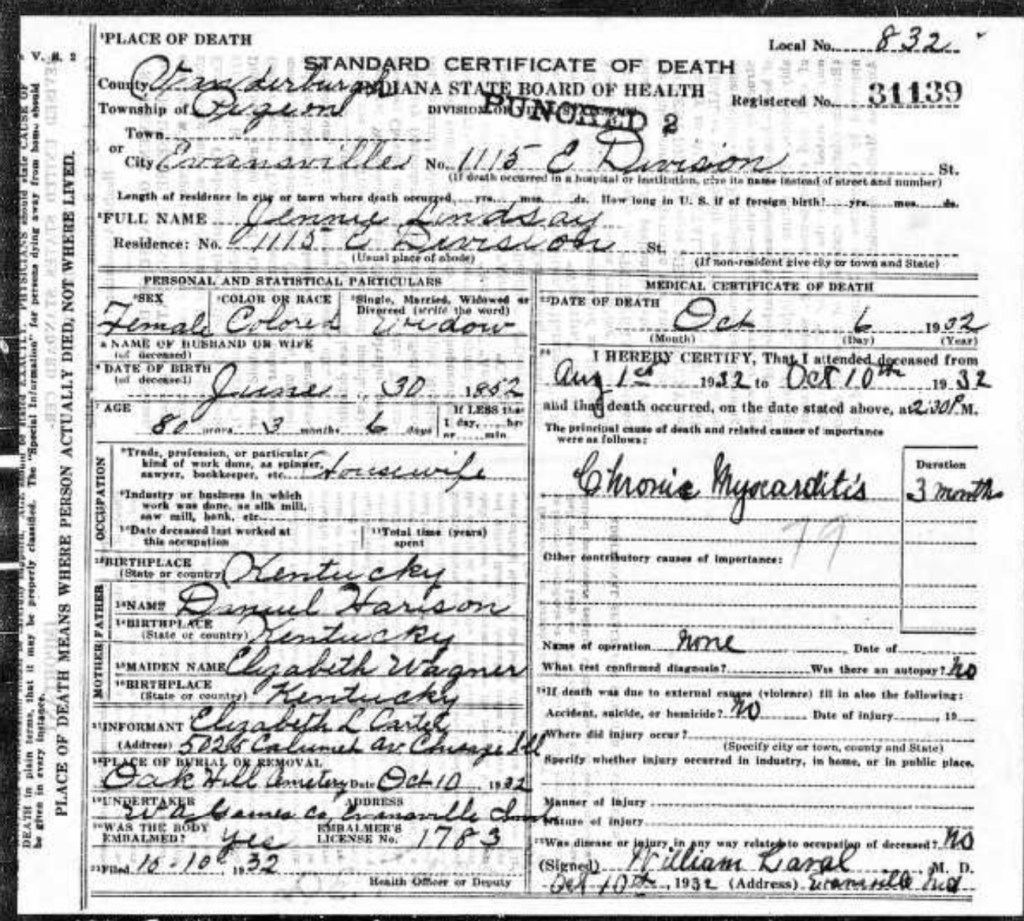 PLACE OF DEATH
Local No. 832
STANDARD CERTIFICATE OF DEATH
County Vanderburgh
INDIANA STATE BOARD OF HEALTH
Township of Pigeon
DIVISION OF
Registered No. 31139
PUNCHED 2
Town
or
City Evansville No. 1115 E Division St.
(If death occurred in a hospital or institution, give its name instead of street and number)
Length of residence in city or town where death occurred, yrs. mos. ds. How long in U. S. if of foreign birth? yrs. mos. ds.
FULL NAME Jennie Lindsay
Residence: No. 1115 E Division St.
(Usual place of abode)
(If non-resident give city or town and State)
PERSONAL AND STATISTICAL PARTICULARS
SEX
COLOR OR RACE
Single, Married, Widowed or Divorced (write the word)
Female Colored Widow
NAME OF HUSBAND OR WIFE
(of deceased)
DATE OF BIRTH
(of deceased) June 30 1852
AGE
80 years 3 months 6 days
If LESS than
1 day, hrs
or min
OCCUPATION
Trade, profession, or particular
kind of work done, as spinner,
sawyer, bookkeeper, etc. Housewife
Industry or business in which
work was done, as silk mill,
saw mill, bank, etc.
Date deceased last worked at
this occupation
Total time (years)
spent
BIRTHPLACE
(State or country) Kentucky
FATHER
NAME Daniel Harison
BIRTHPLACE
(State or country) Kentucky
MOTHER
MAIDEN NAME Elizabeth Wagner
BIRTHPLACE
(State or country) Kentucky
INFORMANT Elizabeth L Carter
(Address) 5026 Calumet Av Chicago Ill
PLACE OF BURIAL OR REMOVAL
Oak Hill Cemetery Date Oct 10 1932
UNDERTAKER
ADDRESS
W A Gaines Co, Evansville Ind
WAS THE BODY
EMBALMED? Yes
EMBALMER'S
LICENSE No. 1783
Filed 10-10 1932
Health Officer or Deputy
MEDICAL CERTIFICATE OF DEATH
DATE OF DEATH
Oct 6 1932
(Month) (Day) (Year)
I HEREBY CERTIFY, That I attended deceased from
Aug 1st 1932 to Oct 10th 1932
and that death occurred, on the date stated above, at 2:30 P.M.
The principal cause of death and related causes of importance
were as follows:
Duration
Chronic Myocarditis 3 months
79
Other contributory causes of importance:
Name of operation none Date of
What test confirmed diagnosis? Was there an autopsy? No
If death was due to external causes (violence) fill in also the following:
Accident, suicide, or homicide? No Date of injury 19
Where did injury occur?
(Specify city or town, county and State)
Specify whether injury occurred in industry, in home, or in public place.
Manner of injury
Nature of injury
Was disease or injury in any way related to occupation of deceased? No
(Signed) William M. D.
Oct 10th, 1932 (Address) Evansville Ind
V. S. 2
PLACE OF DEATH MEANS WHERE PERSON ACTUALLY DIED, NOT WHERE LIVED.
DEATH in plain terms, that it may be properly classified. The "Special Information" for persons dying away from home should
be given in every instance.